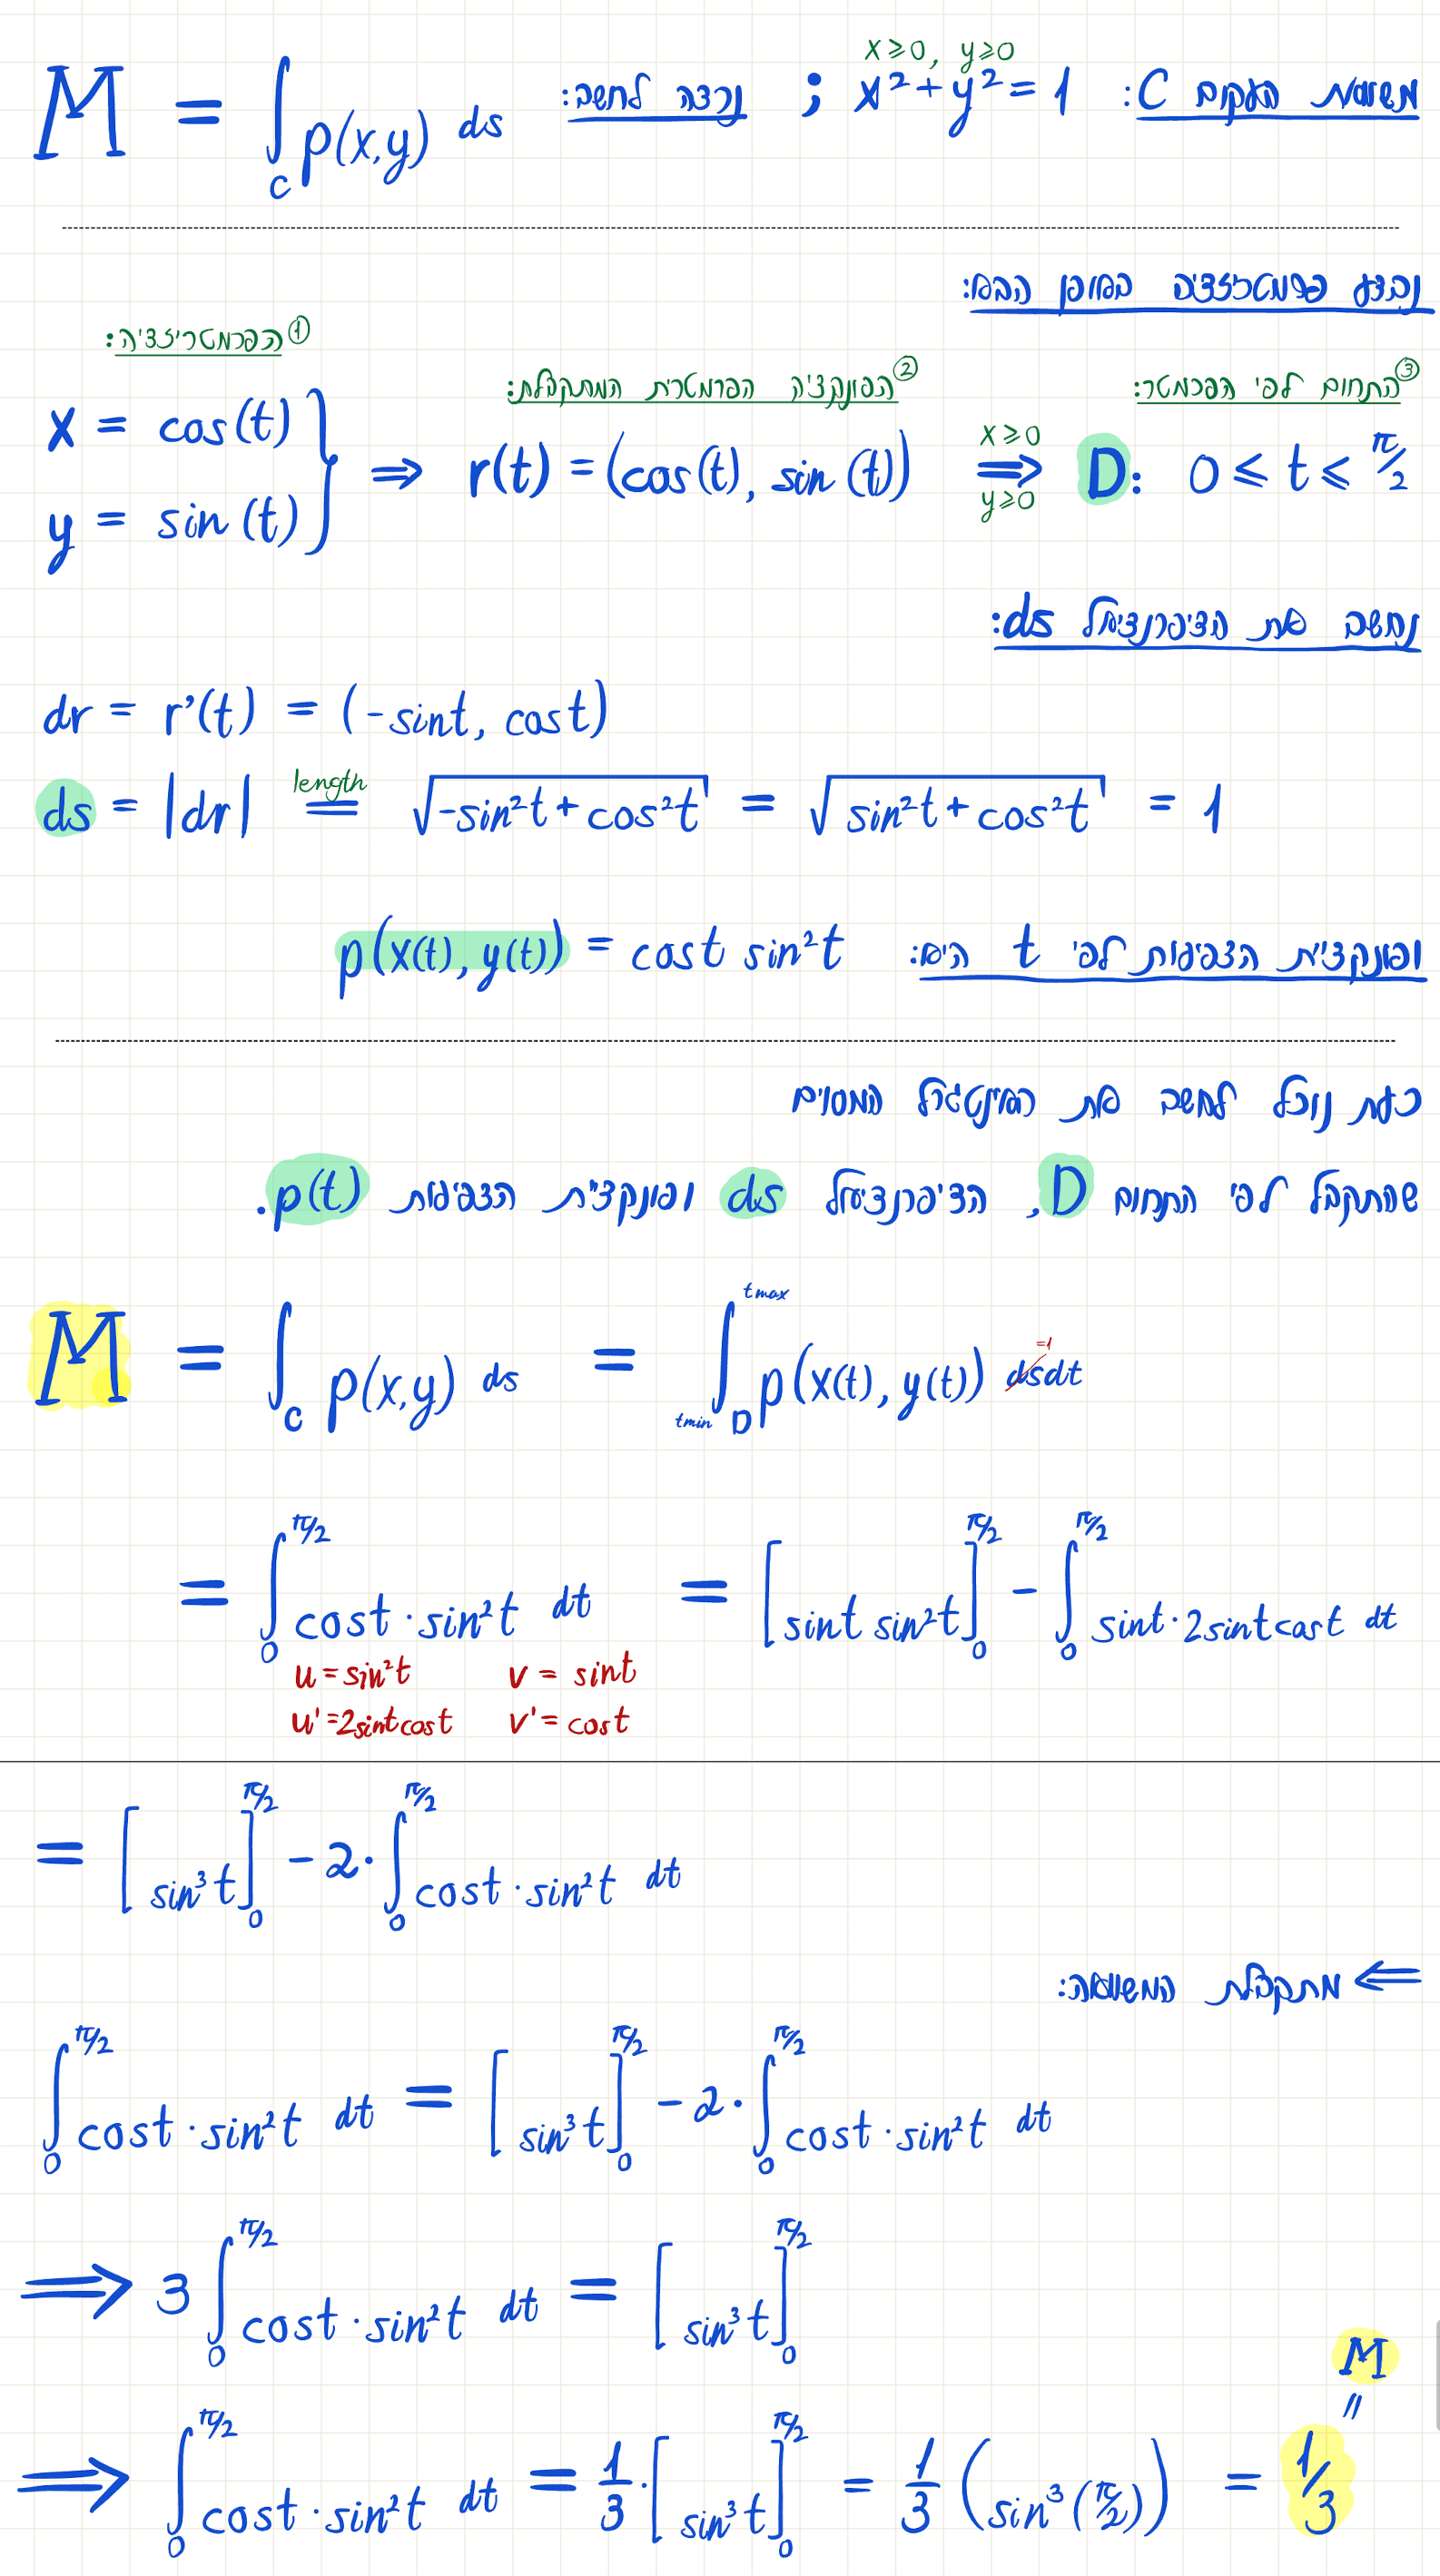 x≥0, y≥0
משוואת העקום C: x²+y²=1 ; נרצה לחשב: M = ∫_C p(x,y) ds
נבצע פרמטריזציה באופן הבא:
① הפרמטריזציה:
② הפונקציה הפרמטרית המתקבלת:
③ התחום לפי הפרמטר:
x = cos(t)
y = sin(t)
} ⇒ r(t) = (cos(t), sin(t)) ⇒ (x≥0, y≥0) D: 0 ≤ t ≤ π/2
נחשב את הדיפרנציאל ds:
dr = r'(t) = (-sint, cost)
ds = |dr| =(length) √(-sin²t + cos²t) = √(sin²t + cos²t) = 1
ופונקציית הצפיפות לפי t היא: p(x(t), y(t)) = cost sin²t
כעת נוכל לחשב את האינטגרל המסוים
שהתקבל לפי התחום D, הדיפרנציאל ds ופונקציית הצפיפות p(t).
M = ∫_C p(x,y) ds = ∫_D^{tmax}_{tmin} p(x(t), y(t)) ds dt
=1
= ∫_0^{π/2} cost·sin²t dt = [sint sin²t]_0^{π/2} - ∫_0^{π/2} sint·2sintcost dt
u=sin²t v=sint
u'=2sintcost v'=cost
= [sin³t]_0^{π/2} - 2·∫_0^{π/2} cost·sin²t dt
⇐ מתקבלת המשוואה:
∫_0^{π/2} cost·sin²t dt = [sin³t]_0^{π/2} - 2·∫_0^{π/2} cost·sin²t dt
⇒ 3∫_0^{π/2} cost·sin²t dt = [sin³t]_0^{π/2}
M
=
⇒ ∫_0^{π/2} cost·sin²t dt = 1/3·[sin³t]_0^{π/2} = 1/3 (sin³(π/2)) = 1/3